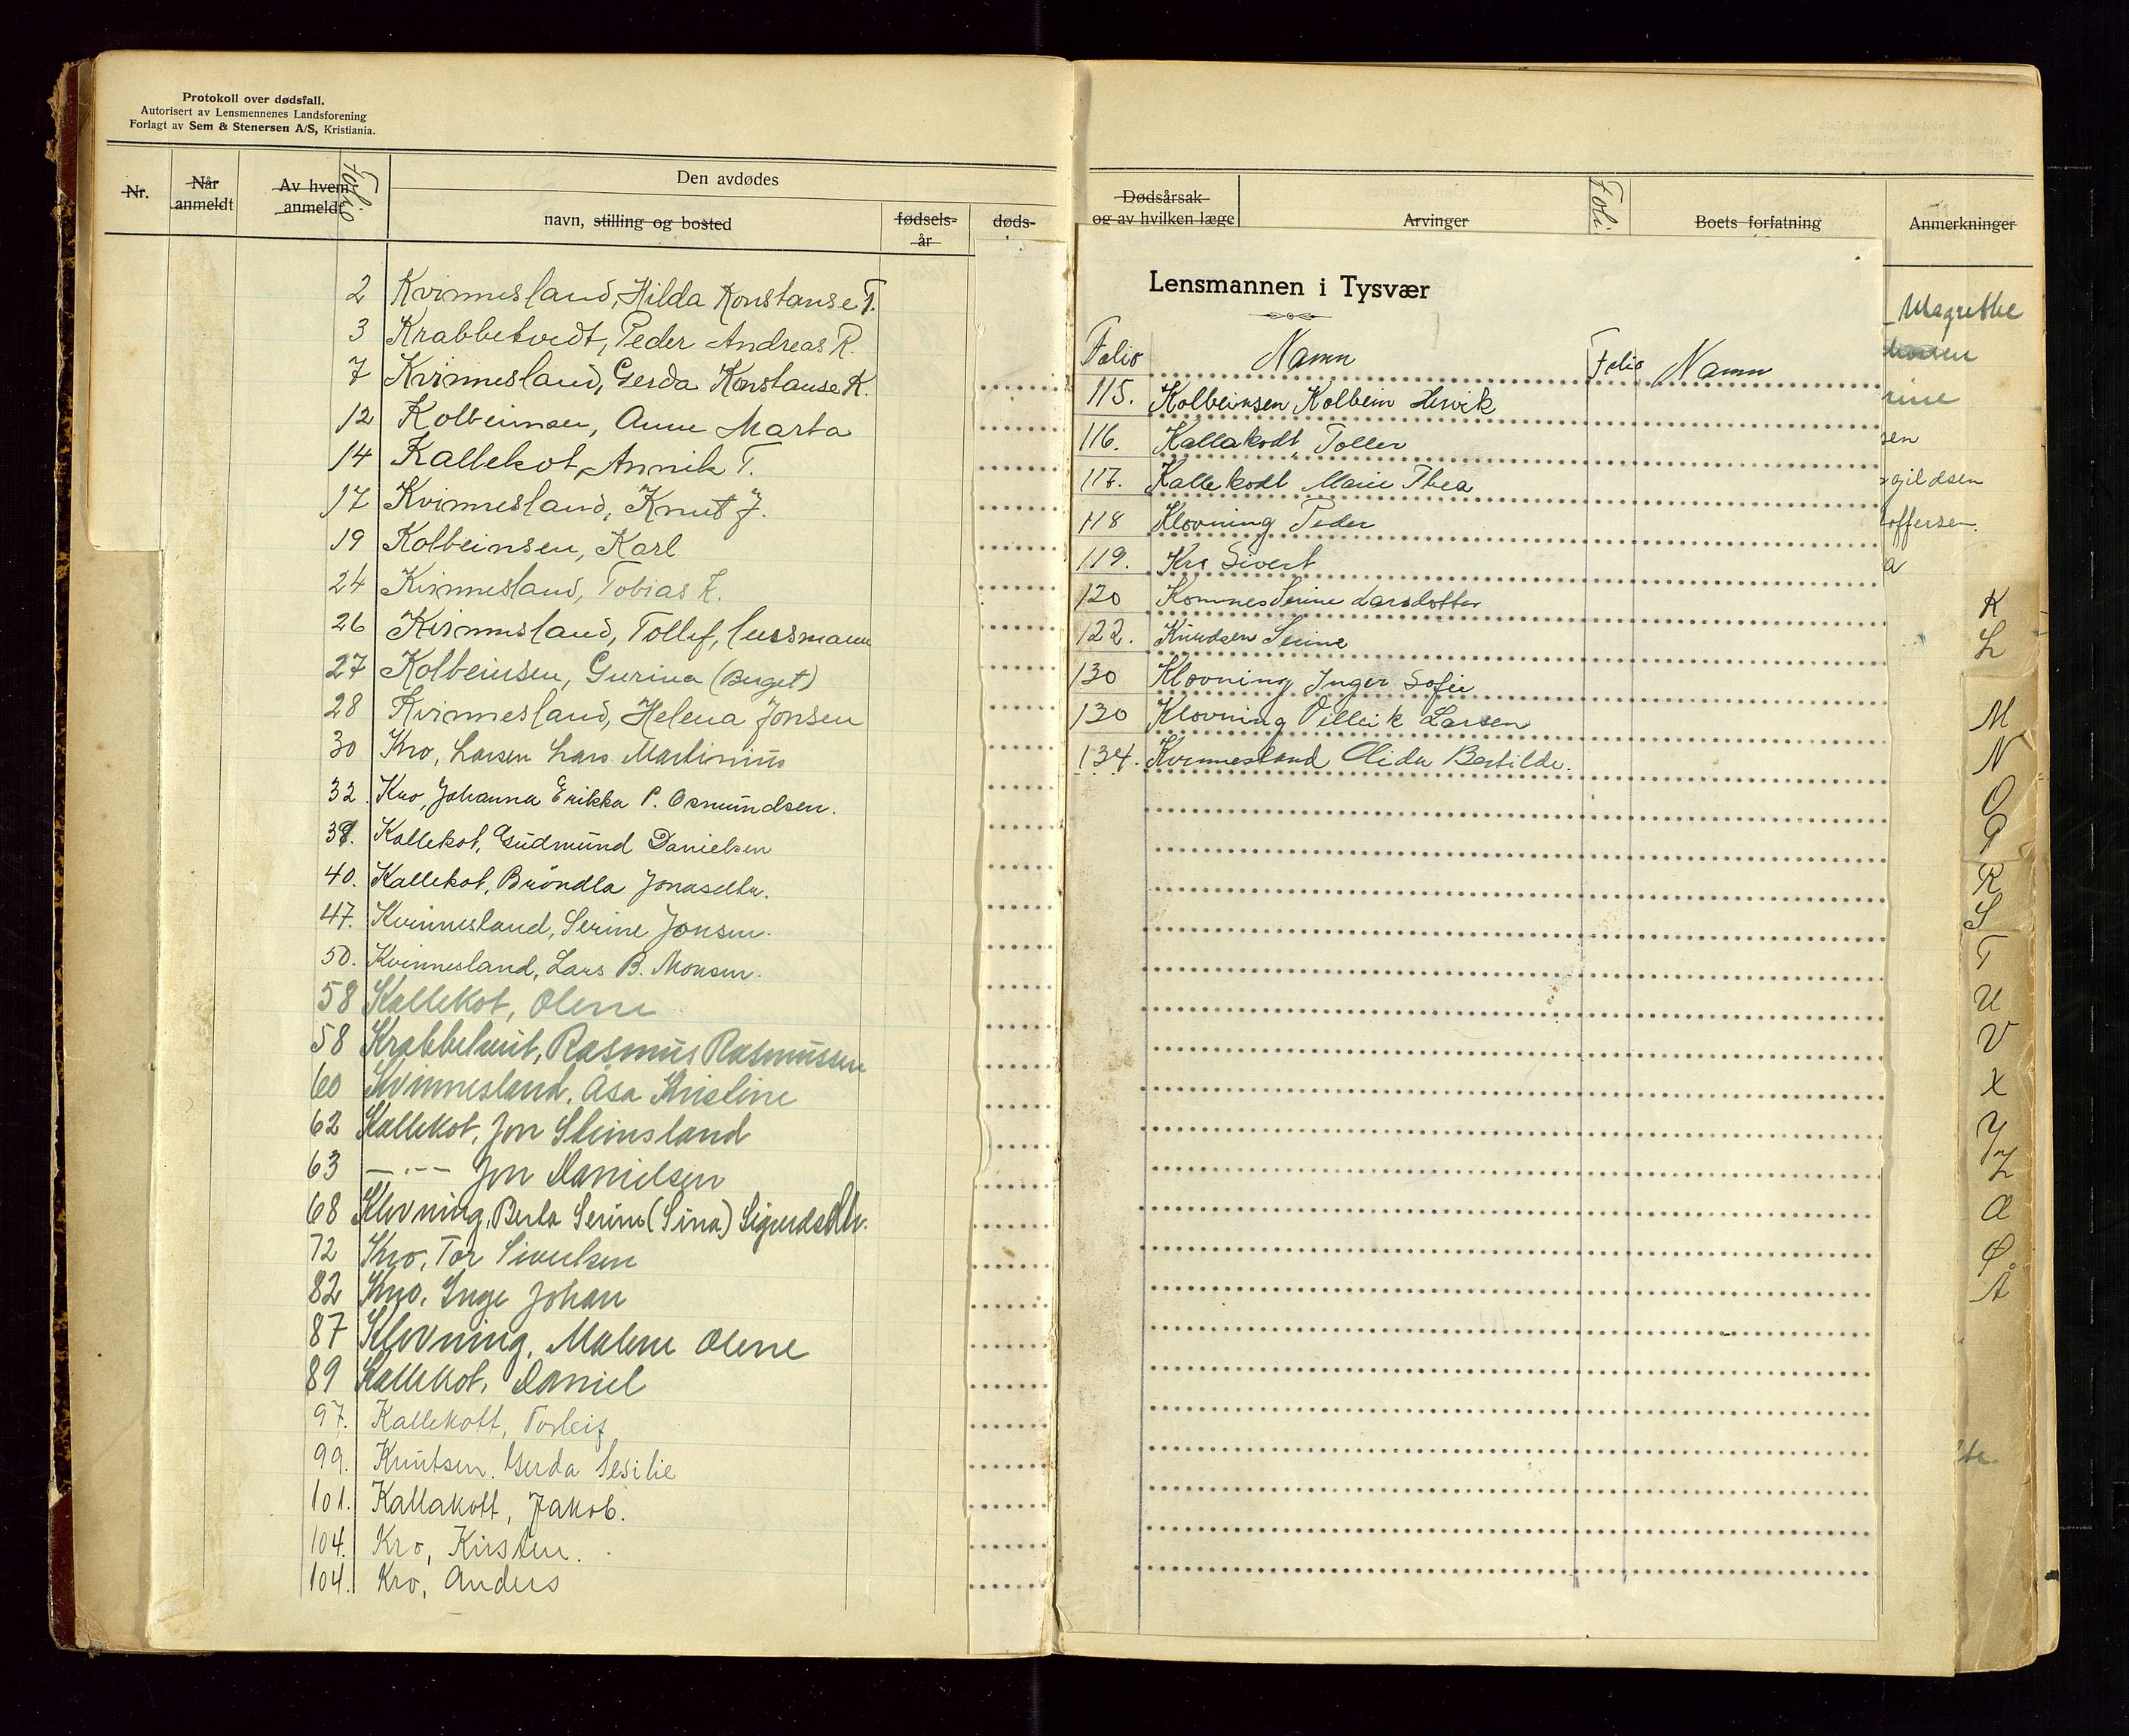 Protokoll over dødsfall.
Autorisert av Lensmennenes Landsforening
Forlagt av Sem & Stenersen A/S, Kristiania.
Nr.
Når anmeldt
Av hvem anmeldt
Folio
Den avdødes
navn, stilling og bosted
fødsels-
år
døds-
2 Kvinnesland, Hilda Konstanse T.
3 Krabbetvedt, Peder Andreas R.
7 Kvinnesland, Gerda Konstanse K.
12 Kolbeinsen, Anne Marta
14 Kallekot, Annik T.
17 Kvinnesland, Knut J.
19 Kolbeinsen, Karl
24 Kvinnesland, Tobias K.
26 Kvinnesland, Tollef, lensmann
27 Kolbeinsen, Gurina (Burget)
28 Kvinnesland, Helena Jonsen
30 Kro, Larsen Lars Martinius
32. Kro, Johanna Erikka P. Osmundsen.
38. Kallekot, Gudmund Danielsen
40. Kallekot, Bröndla Jonasdtr.
47. Kvinnesland, Serine Jonsen.
50. Kvinnesland, Lars B. Monsen.
58 Kallekot, Olene
58 Krabbetveit, Rasmus Rasmussen
60 Kvinnesland, Åsa Kristine
62 Kallekot, Jon Steinsland
63 —·-- Jon Danielsen
68 Klovning, Berta Serine (Sina) Sigurdsdtr.
72 Kro, Tor Sivertsen
82 Kro, Inge Johan
87 Klovning, Malene Olene
89 Kallekot, Daniel
97. Kallekott, Torleif
99. Knutsen, Gerda Sesilie
101. Kallakott, Jakob.
104. Kro, Kirsten.
104. Kro, Anders
Dødsårsak
og av hvilken læge
Arvinger
Foli
Boets forfatning
Anmerkninger
Lensmannen i Tysvær
Folio Namn Folio Namn
115. Kolbeinsen Kolbein Hervik
116. Kallakodt, Toller
117. Kallekodt Marie Thea
118 Klovning Peder
119. Kro Sivert
120 Komnes Serine Larsdotter
122. Knudsen Serine
130 Klovning Inger Sofie
130 Klovning Villeik Larsen
134. Kvinnesland Olida Bertilde.
Magrethe
rine
sen
gildsen
offersen.
a
K
L
M
N
O
P
R
S
T
U
V
X
Y
Z
Æ
Ø
Å